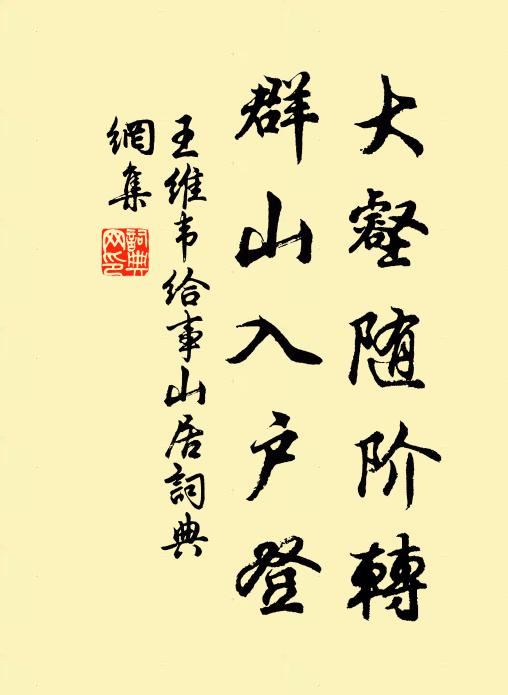 大壑随阶转
群山入户登
王维韦给事山居詞典
網集
詞典网印